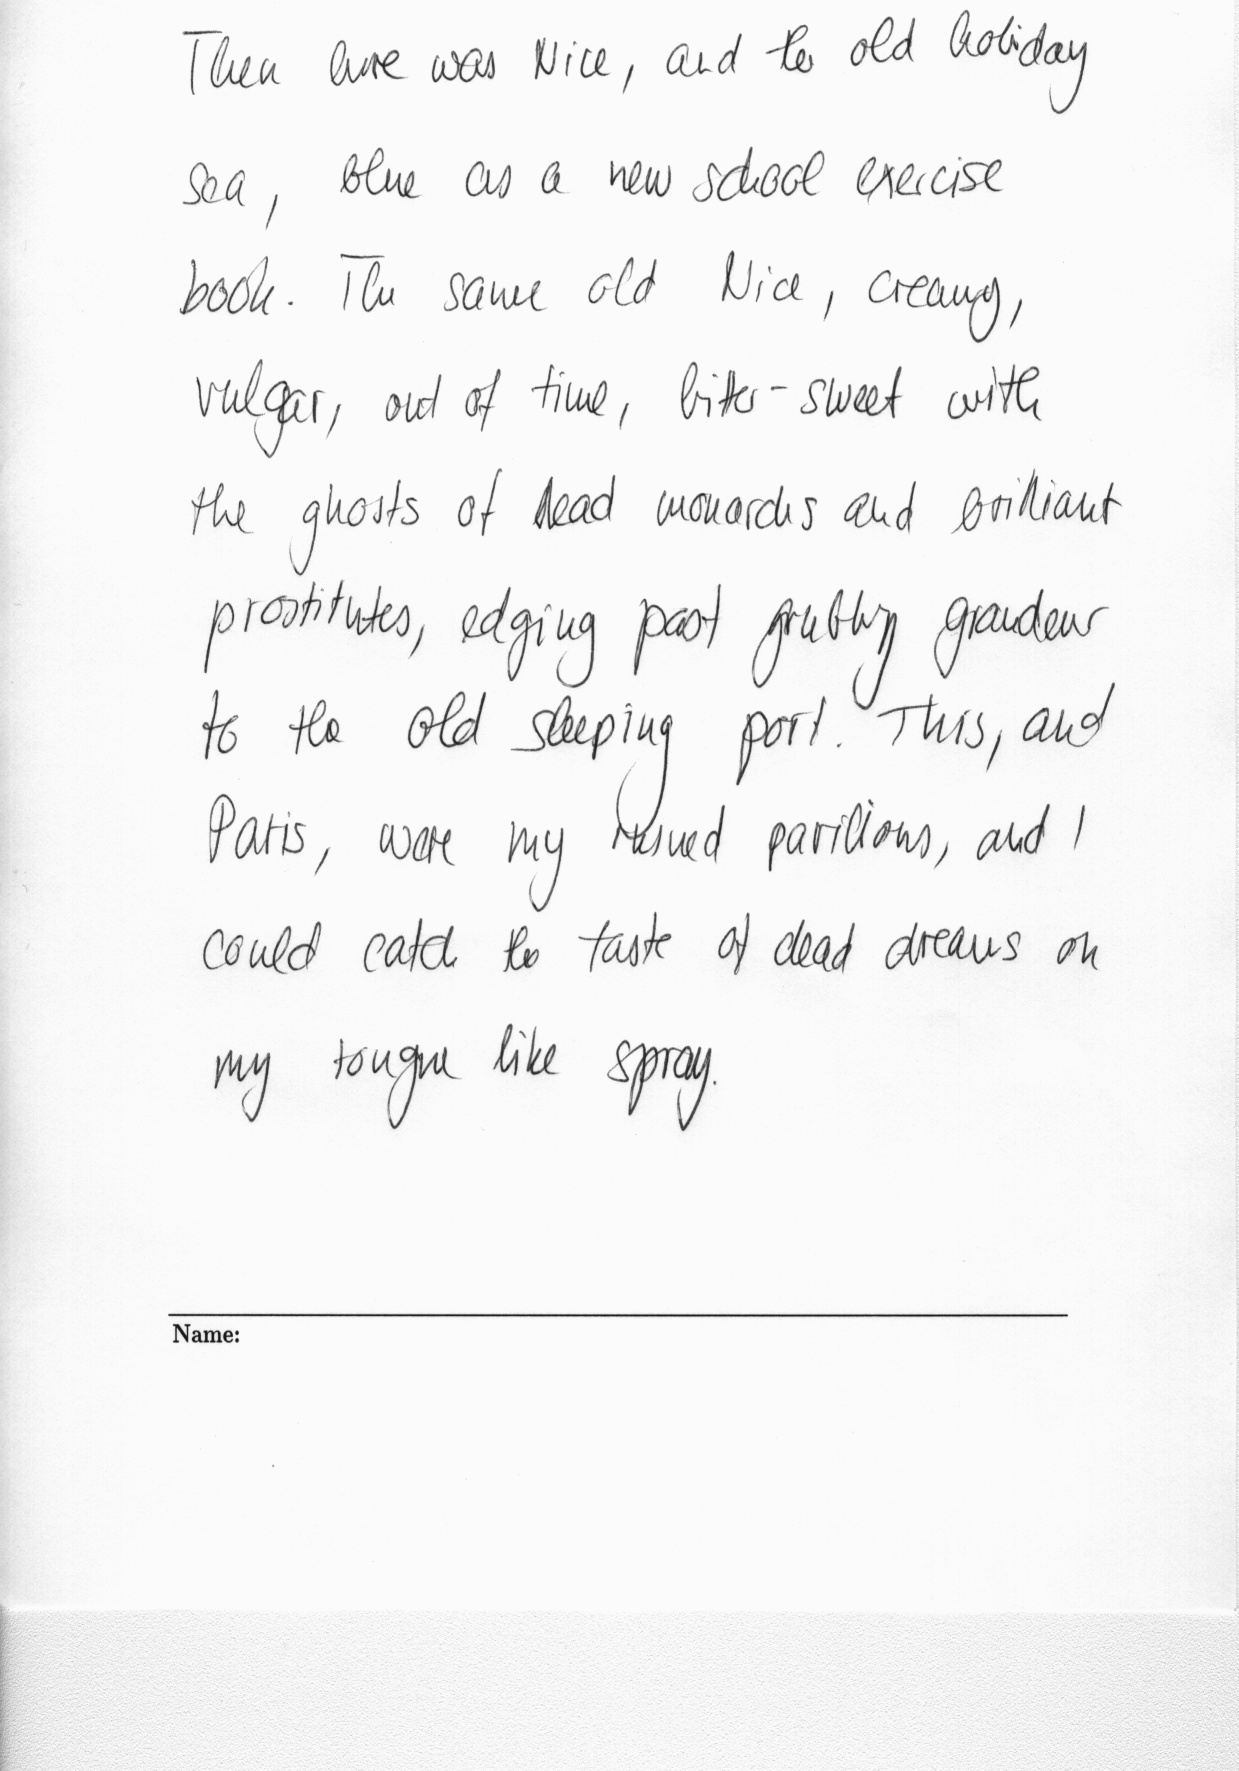 Then here was Nice, and the old holiday
sea, blue as a new school exercise
book. The same old Nice, creamy,
vulgar, out of time, bitter-sweet with
the ghosts of dead monarchs and brilliant
prostitutes, edging past grubby grandeur
to the old sleeping port. This, and
Paris, were my ruined pavilions, and I
could catch the taste of dead dreams on
my tongue like spray.
Name: